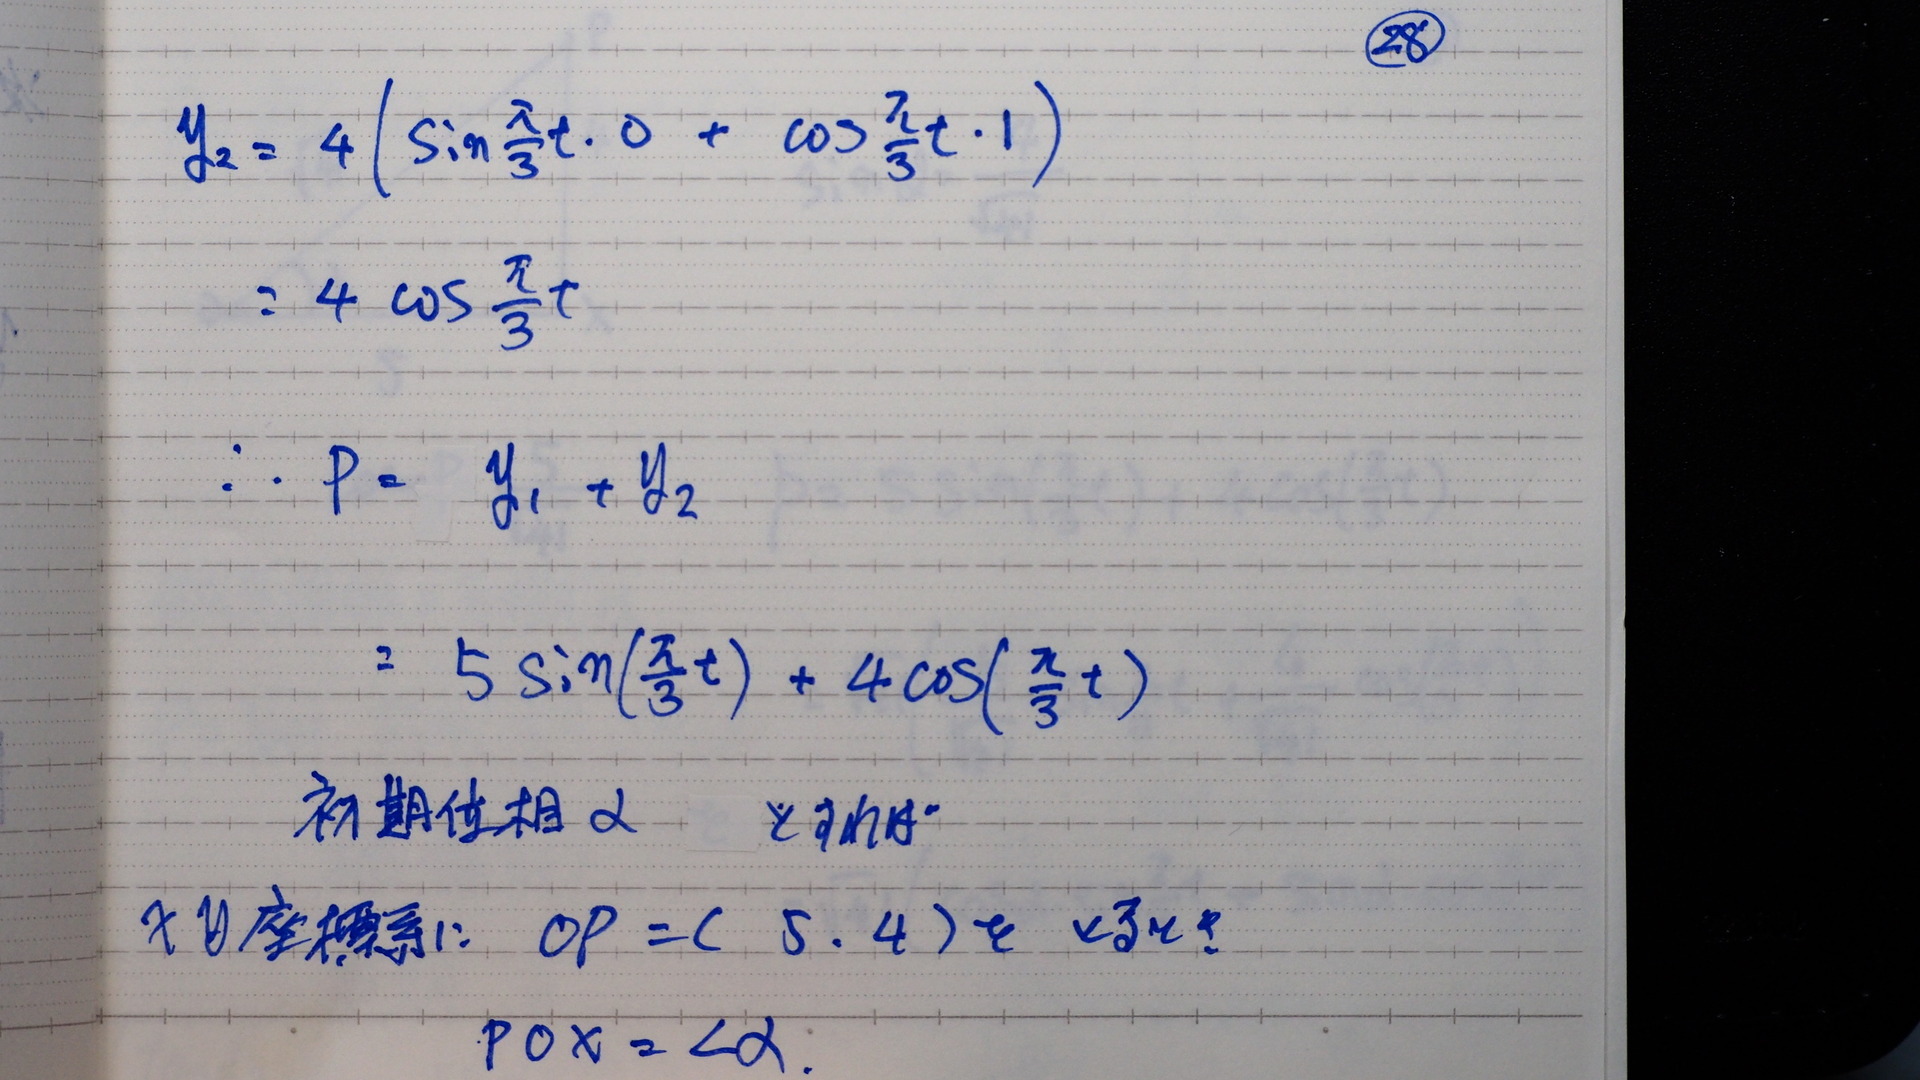 28
y₂ = 4 ( sin π/3 t · 0 + cos π/3 t · 1 )
= 4 cos π/3 t
∴ P = y₁ + y₂
= 5 sin( π/3 t ) + 4 cos( π/3 t )
初期位相 α とすれば
xy座標系に OP = ( 5 . 4 ) を とるとき
POX = ∠α.